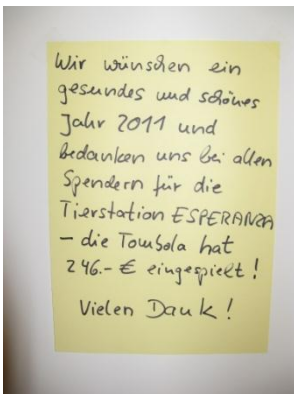 Wir wünschen ein
gesundes und schönes
Jahr 2011 und
bedanken uns bei allen
Spendern für die
Tierstation ESPERANZA
– die Tombola hat
246.- € eingespielt!
Vielen Dank!